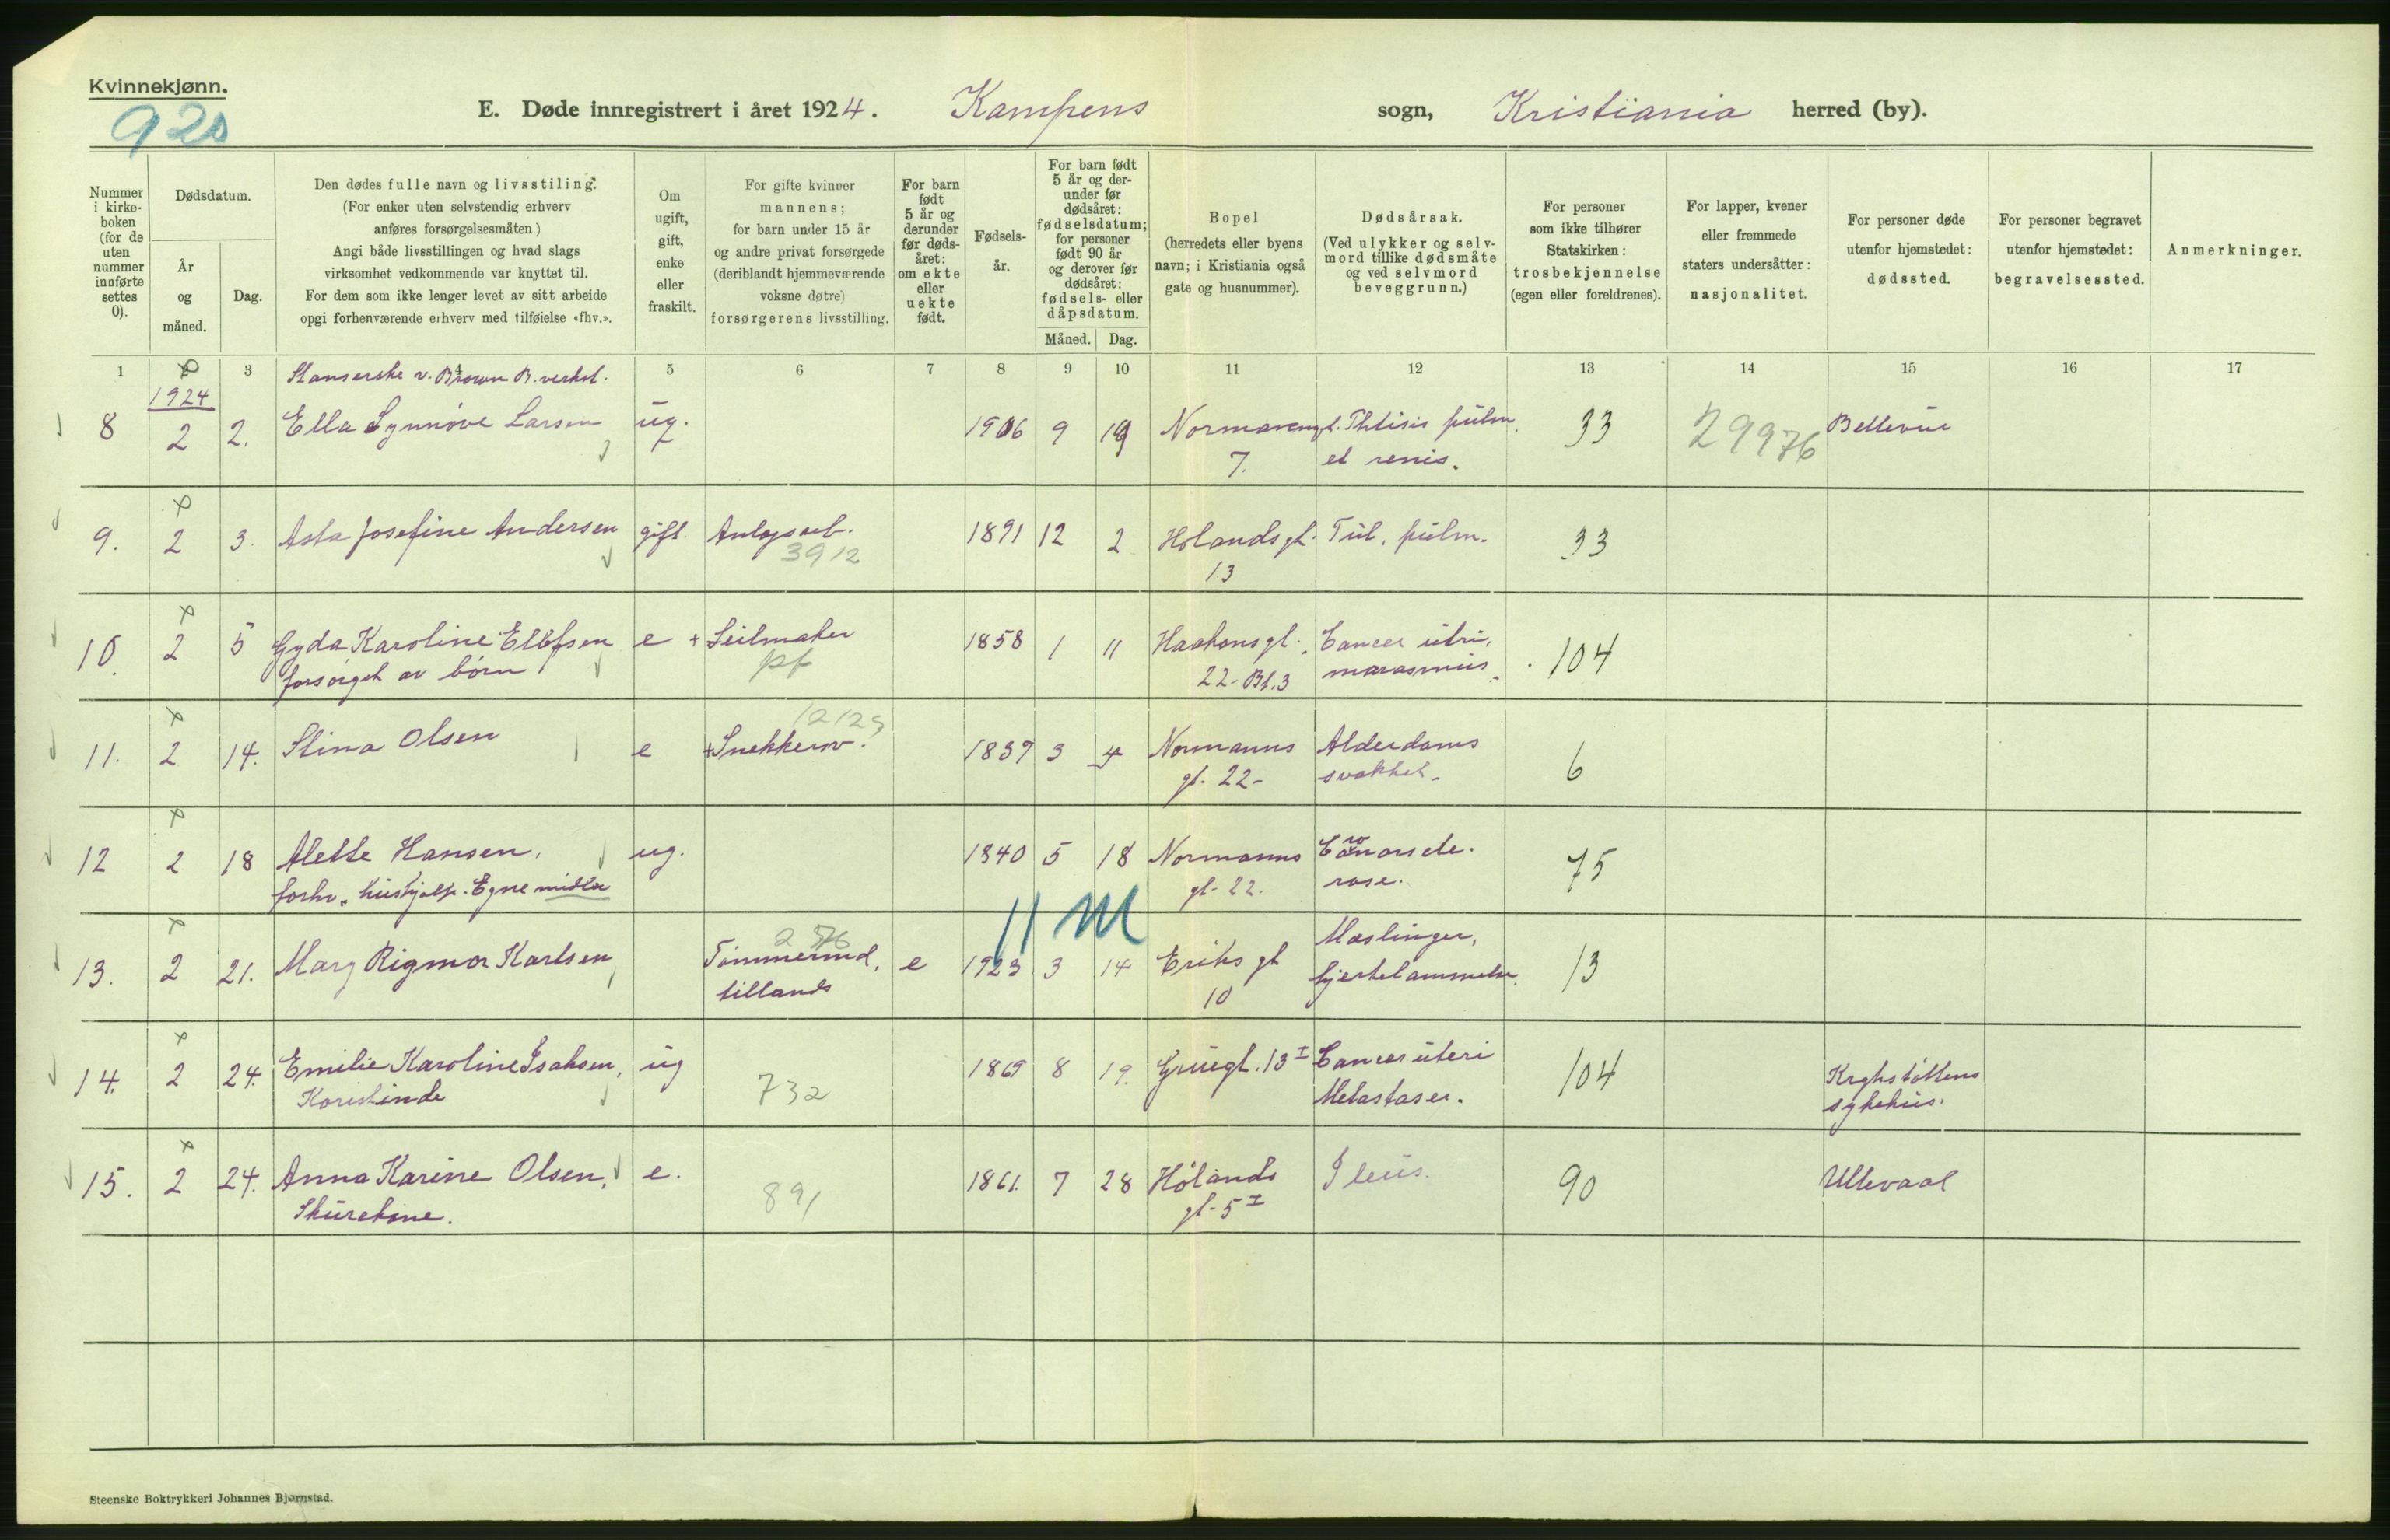 Kvinnekjønn.
920
E. Døde innregistrert i året 1924. Kampens sogn, Kristiania herred (by).
Nummer i kirke-boken (for de uten nummer innførte settes 0).
Dødsdatum.
År og måned.
Dag.
Den dødes fulle navn og livsstiling.
(For enker uten selvstendig erhverv
anføres forsørgelsesmåten.)
Angi både livsstillingen og hvad slags
virksomhet vedkommende var knyttet til.
For dem som ikke lenger levet av sitt arbeide
opgi forhenværende erhverv med tilføielse «fhv.».
Om ugift, gift, enke eller fraskilt.
For gifte kvinner
mannens;
for barn under 15 år
og andre privat forsørgede
(deriblandt hjemmeværende
voksne døtre)
forsørgerens livsstilling.
For barn født 5 år og derunder før døds-året: om ekte eller uekte født.
Fødsels-år.
For barn født 5 år og der-under før dødsåret: fødselsdatum; for personer født 90 år og derover før dødsåret: fødsels- eller dåpsdatum.
Måned. Dag.
Bopel
(herredets eller byens
navn; i Kristiania også
gate og husnummer).
Dødsårsak.
(Ved ulykker og selv-
mord tillike dødsmåte
og ved selvmord
beveggrunn.)
For personer
som ikke tilhører
Statskirken:
trosbekjennelse
(egen eller foreldrenes).
For lapper, kvener
eller fremmede
staters undersåtter:
nasjonalitet.
For personer døde
utenfor hjemstedet:
dødssted.
For personer begravet
utenfor hjemstedet:
begravelsessted.
Anmerkninger.
1 2 3 4 5 6 7 8 9 10 11 12 13 14 15 16 17
Stanserske v. Brown B. verkst.
1924
8 2 2. Ella Synnøve Larsen ug. 1906 9 19 Normannsgt. Phtisis pulm. 33 29976 Bellevue
7. et renis.
9. 2 3. Asta Josefine Andersen gift. Anlægsarb. 1891 12 2 Hølandsgt. Tub. pulm. 33
3912
13
10. 2 5 Gyda Karoline Ellefsen e + Seilmaker 1858 1 11 Haakonsgt. Cancer uteri, 104
forsørget av børn pf 22. Bt. 3 marasmus.
12125
11. 2 14. Stina Olsen e + Snekkersv. 1837 3 4 Normanns Alderdoms 6
gt. 22- svakhet.
12 2 18 Alette Hansen, ug. 1840 5 18 Normanns 75
forhv. hushjælp. Egne midler gt. 22. rose.
11 M
2576
13. 2 21. Mary Rigmor Karlsen Tømmermd. e 1923 3 14 Eriks gt Mæslinger, 13
tillands 10 hjertelammelse.
14. 2 24. Emilie Karoline Isaksen, ug 1869 8 19. Gruegt. 13 I Cancer uteri 104 Krghstøttens
Koristinde 732 Metastaser. sykehus.
15. 2 24. Anna Karine Olsen, e. 1861. 7 28 Hølands Ileus. 90 Ullevaal
Skurekone. 891 gt. 5 I
Steenske Boktrykkeri Johannes Bjørnstad.